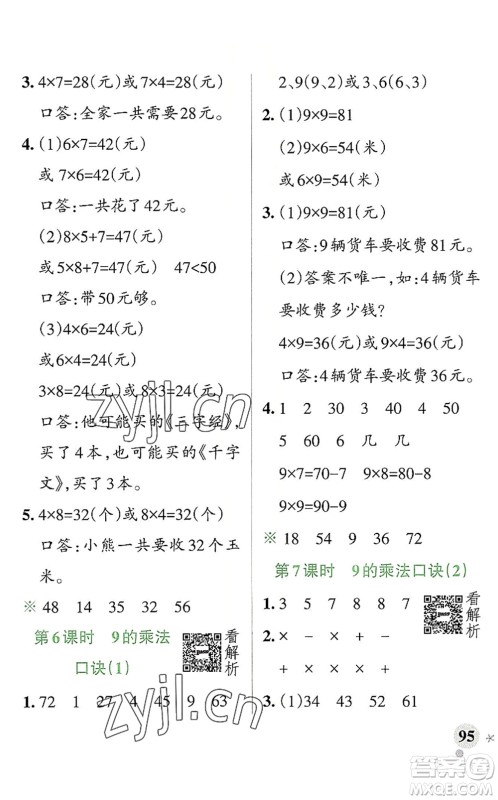 3. 4×7=28(元)或7×4=28(元)
口答:全家一共需要28元。
4. (1)6×7=42(元)
或 7×6=42(元)
口答:一共花了42元。
(2)8×5+7=47(元)
或5×8+7=47(元) 47<50
口答:带50元够。
(3)4×6=24(元)
或6×4=24(元)
3×8=24(元)或8×3=24(元)
口答:他可能买的《三字经》,
买了4本,也可能买的《千字
文》,买了3本。
5. 4×8=32(个)或8×4=32(个)
口答:小熊一共要收32个玉
米。
※ 48 14 35 32 56
第6课时 9的乘法
口诀(1)
看解析
1. 72 1 27 4 45 9 63
2、9(9、2)或3、6(6、3)
2. (1)9×9=81
(2)9×6=54(米)
或6×9=54(米)
3. (1)9×9=81(元)
口答:9辆货车要收费81元。
(2)答案不唯一,如:4辆货车
要收费多少钱?
4×9=36(元)或9×4=36(元)
口答:4辆货车要收费36元。
4. 1 2 30 3 40 4 50
5 60 6 几 几
9×7=70-7 9×8=80-8
9×9=90-9
※ 18 54 9 36
第7课时 9的乘法口诀(2)
1. 3 5 7 8 8 7
看解析
2. × × - + -
+ × × × +
3. (1)34 43 52 61
95
zyjl.cn
zyjl.cn
答案圈